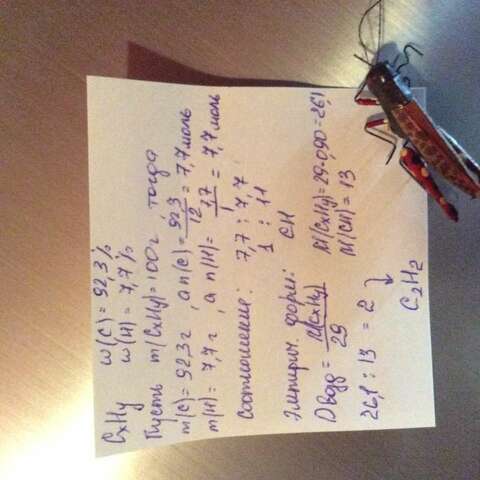 CxHy w(C) = 92,3%
w(H) = 7,7%
Пусть m(CxHy)=100г, тогда
m(C)=92,3г, а n(C)= 92,3/12 = 7,7моль
m(H)=7,7г, а n(H)= 7,7/1 = 7,7 моль
Соотношение: 7,7 : 7,7
1 : 1
CH
Эмпирич. форм:
D возд = M(CxHy)/29 M(CxHy)=29·0,90=26,1
M(CH) = 13
26,1 : 13 = 2
C2H2